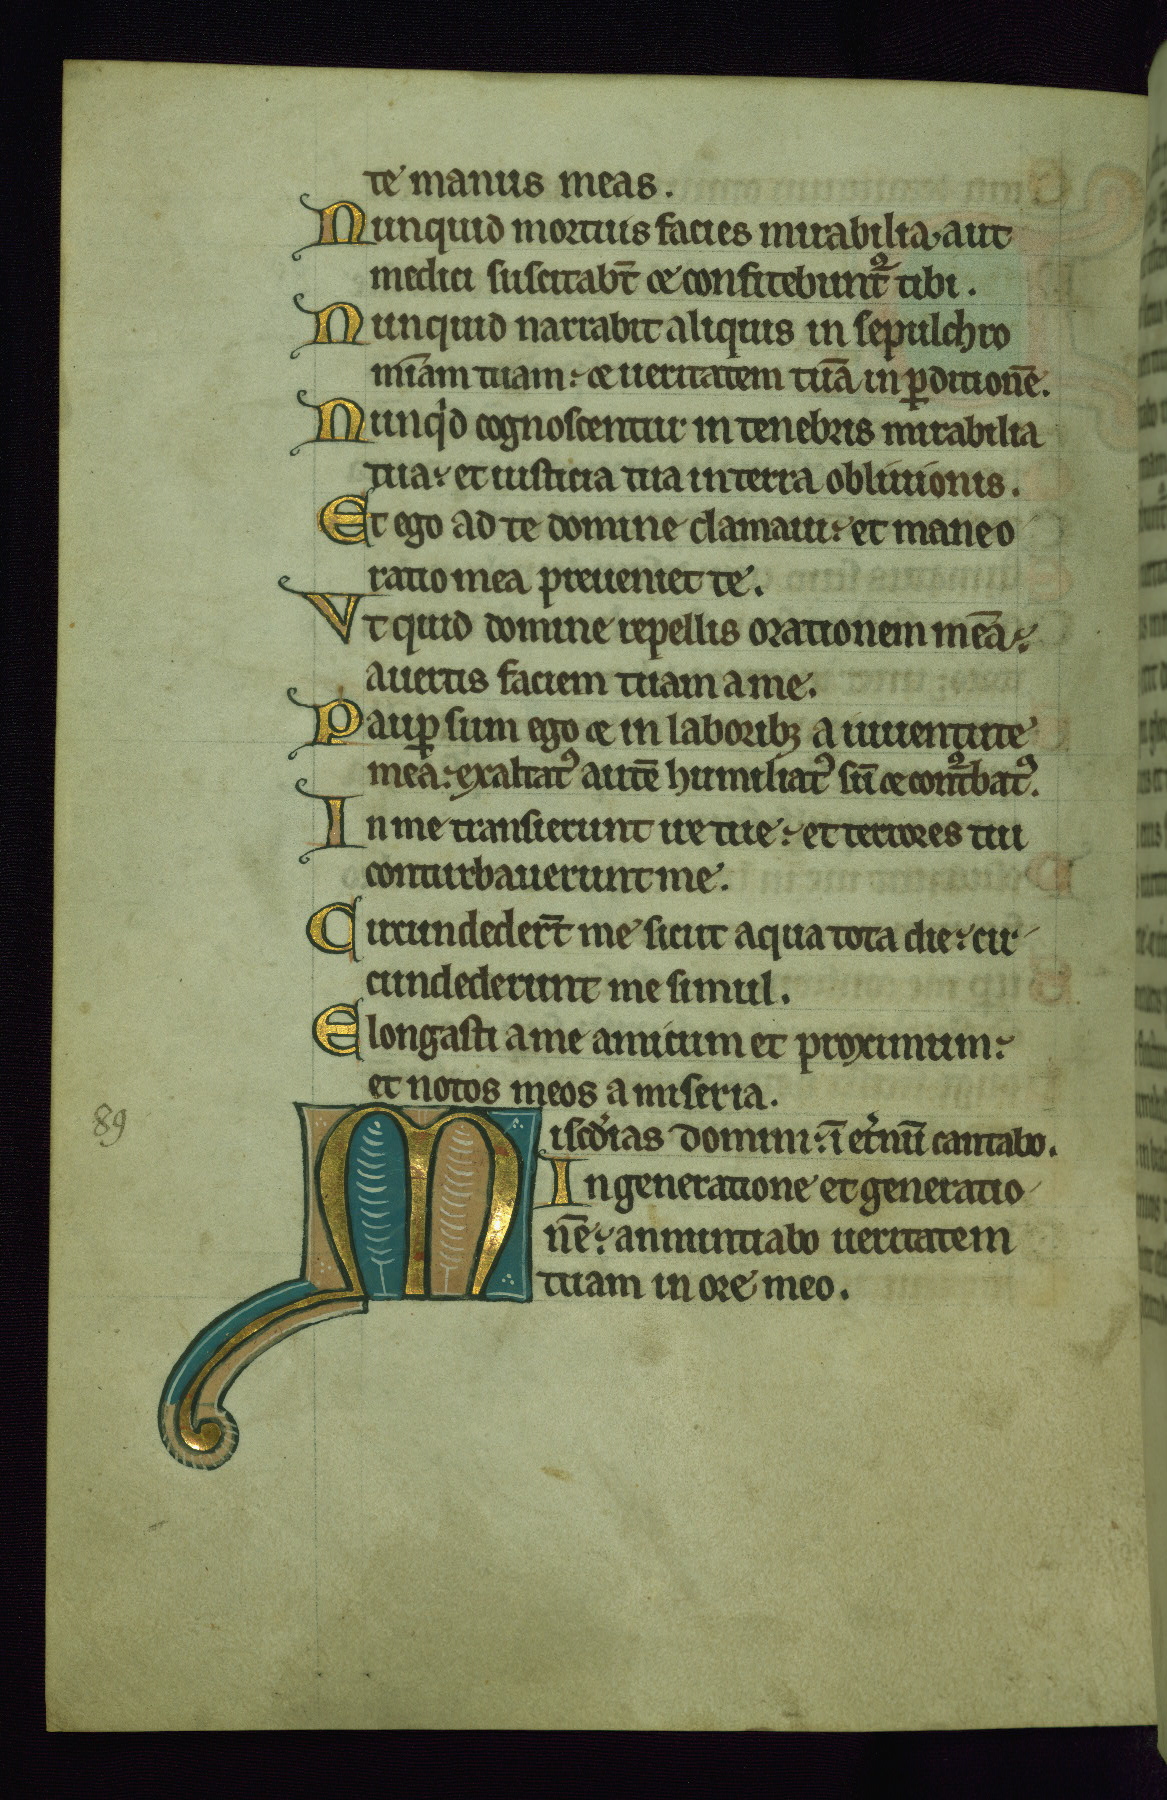 te manus meas.
Nunquid mortuis facies mirabilia, aut
medici suscitabt̄ & confitebunt̄ᷣ tibi.
Nunquid narrabit aliquis in sepulchro
mīam tuam: & ueritatem tuā in ꝑditionē.
Nunqͥd cognoscentur in tenebris mirabilia
tua: et iusticia tua in terra obliuionis.
Et ego ad te domine clamaui: et mane o
ratio mea preueniet te.
Vt quid domine repellis orationem meā:
auertis faciem tuam a me.
Pauꝑ sum ego & in laboribꝫ a iuuentute
mea: exaltatꝰ autē humiliatꝰ sū & contᷣbatꝰ.
In me transierunt ire tue: et terrores tui
conturbauerunt me.
Circundedert̄ me sicut aqua tota die: cir
cundederunt me simul.
Elongasti a me amicum et proximum:
et notos meos a miseria.
89
Misc̄dias domini: ī et̾nū cantabo.
In generatione et generatio
nē: annuntiabo ueritatem
tuam in ore meo.